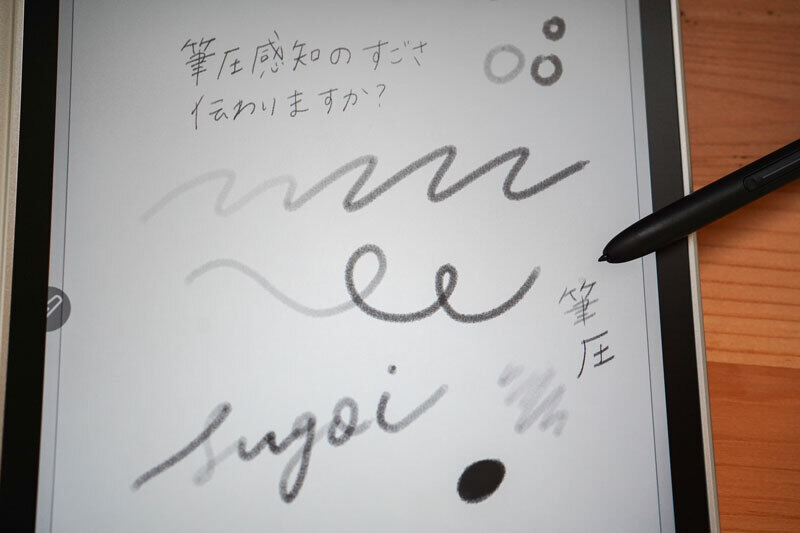 筆圧感知のすごさ
伝わりますか?
筆圧
sugoi